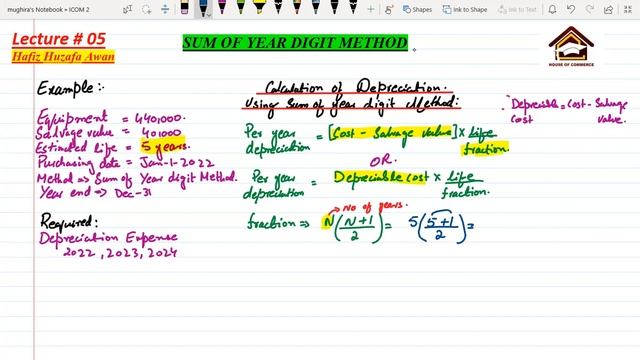 mughira's Notebook » ICOM 2
Shapes
Ink to Shape
Ink to Text
Lecture # 05
Hafiz Huzafa Awan
SUM OF YEAR DIGIT METHOD
HOUSE OF COMMERCE
Example:-
Equipment = 440,000.
Salvage value = 40,000
Estimated life = 5 years.
Purchasing date = Jan-1-2022
Method => Sum of Year digit Method.
Year end => Dec-31
Required:
Depreciation Expense
2022, 2023, 2024
Calculation of Depreciation.
Using Sum of year digit Method:
Per year depreciation = [Cost - Salvage value] x Life / fraction.
OR.
Per year depreciation = Depreciable cost x Life / fraction.
No of years.
fraction => N(N+1/2) = 5(5+1/2)=
Depreciable cost = Cost - Salvage value.